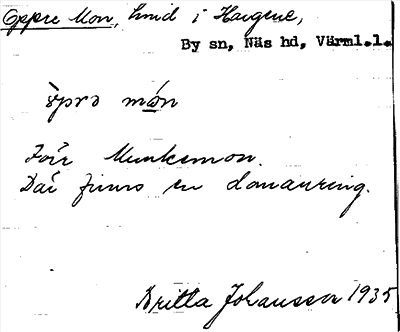 Öppre Mon, hmd i Haugene,
By sn, Näs hd, Värml.l.
öprə mo̱n
Förr Munksmon.
Där finns en domarring.
Britta Johansson 1935